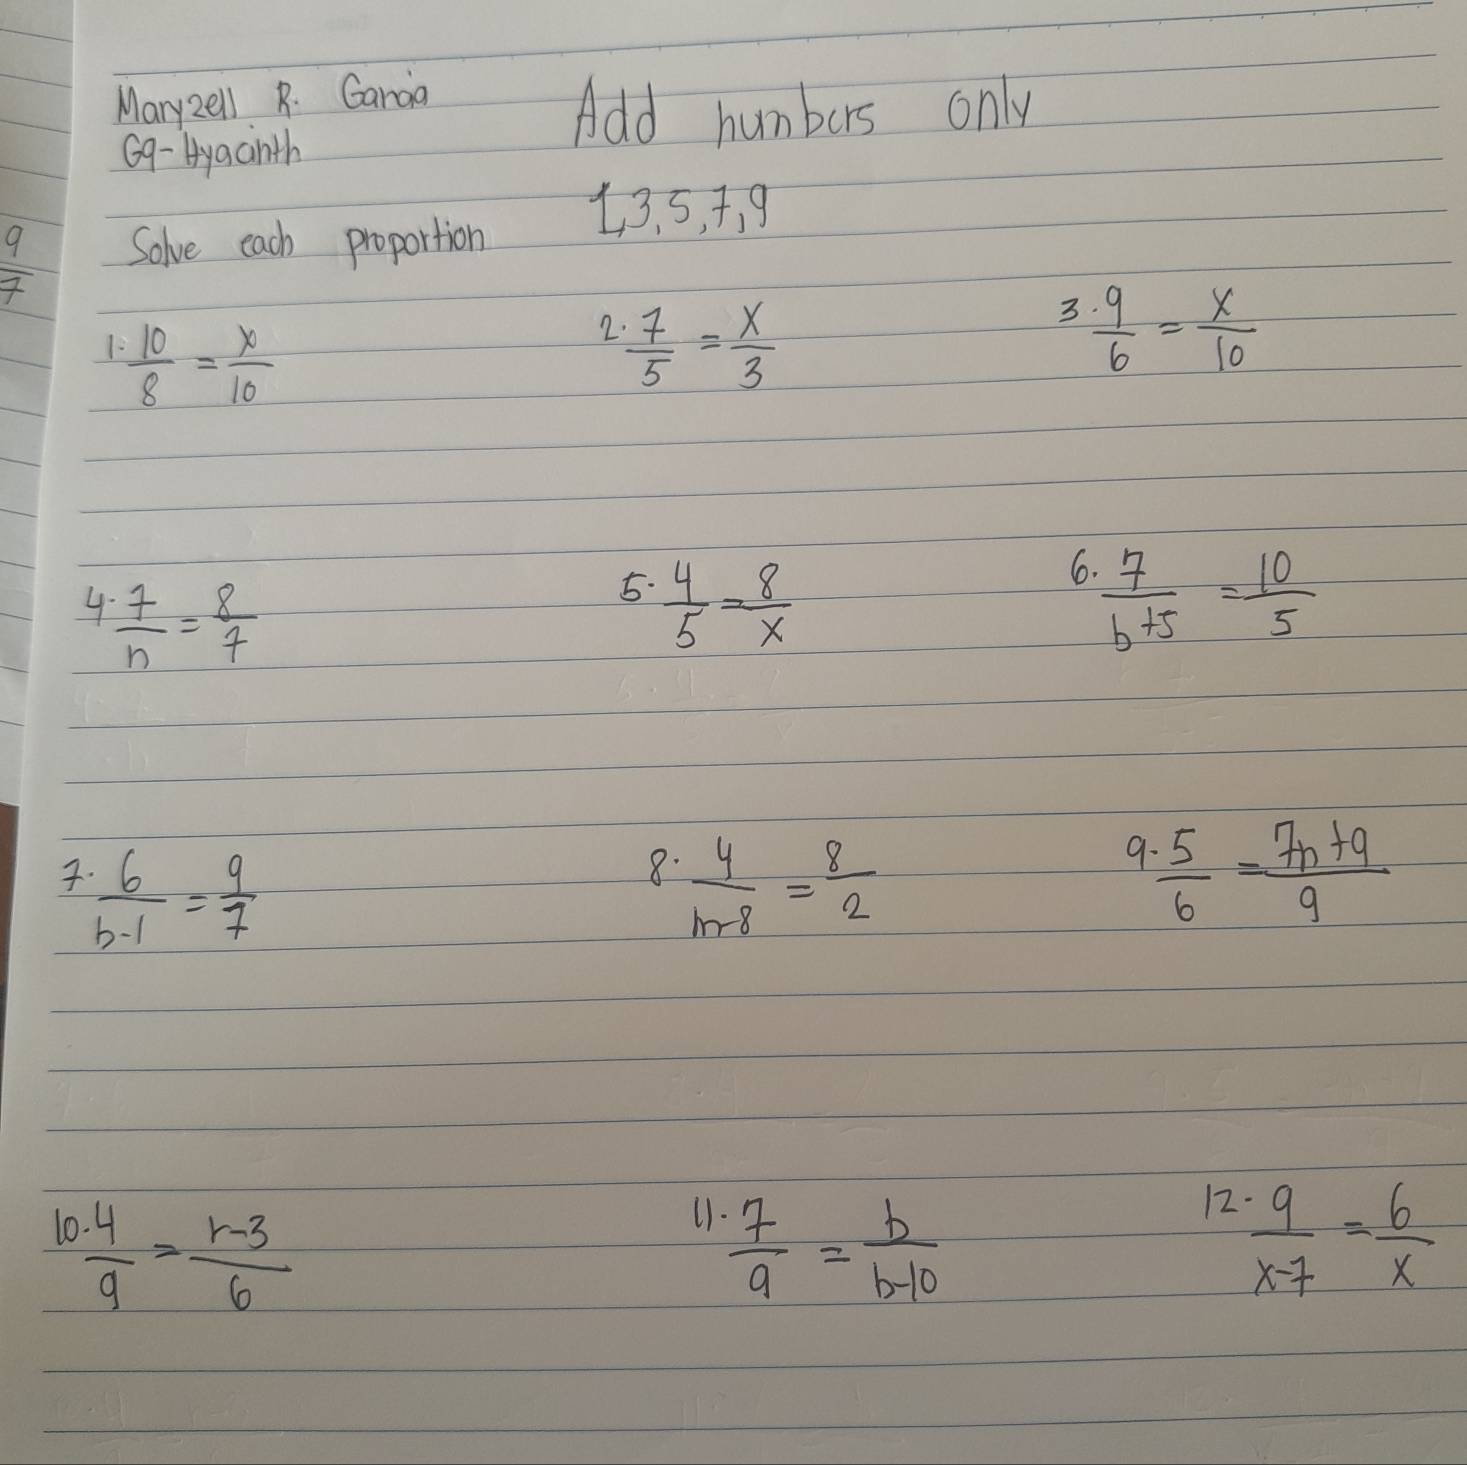 Maryzell R. Garcia
G9-Hyacinth
Add numbers only
1,3,5,7,9
Solve each proportion
9/7
1. 10/8 = x/10
2. 7/5 = x/3
3. 9/6 = x/10
4. 7/n = 8/7
5. 4/5 = 8/x
6. 7/b+5 = 10/5
7. 6/b-1 = 9/7
8. 4/m-8 = 8/2
9. 5/6 = 7n+9/9
10. 4/9 = r-3/6
11. 7/9 = b/b-10
12. 9/x-7 = 6/x